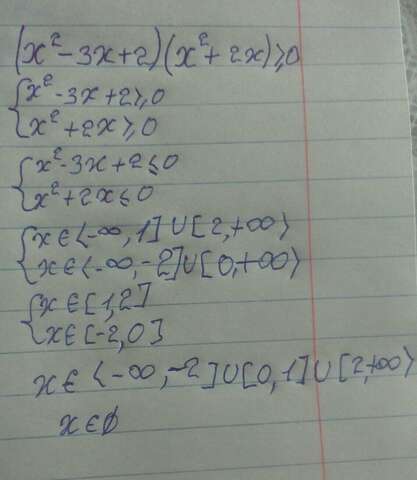 (x² - 3x + 2)(x² + 2x) ≥ 0
{ x² - 3x + 2 ≥ 0
x² + 2x ≥ 0
{ x² - 3x + 2 ≤ 0
x² + 2x ≤ 0
{ x ∈ ⟨-∞, 1] ∪ [2, +∞⟩
x ∈ ⟨-∞, -2] ∪ [0, +∞⟩
{ x ∈ [1, 2]
x ∈ [-2, 0]
x ∈ ⟨-∞, -2] ∪ [0, 1] ∪ [2, +∞⟩
x ∈ ∅